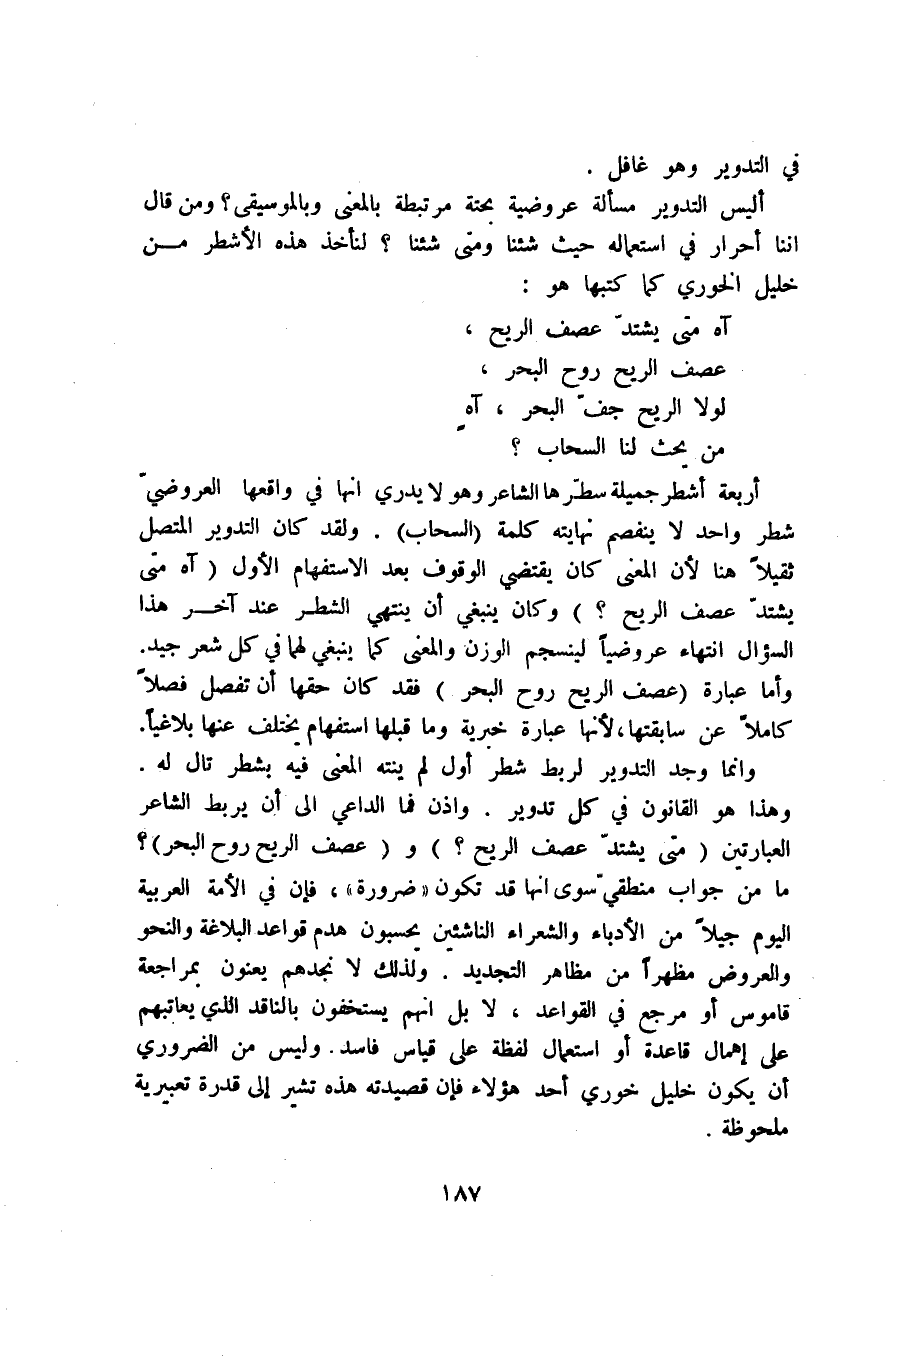 في التدوير وهو غافل .
أليس التدوير مسألة عروضية بحتة مرتبطة بالمعنى وبالموسيقى؟ ومن قال
اننا أحرار في استعماله حيث شئنا ومتى شئنا ؟ لنأخذ هذه الأشطر مــن
خليل الخوري كما كتبها هو :
آه متى يشتدّ عصف الريح ،
عصف الريح روح البحر ،
لولا الريح جفّ البحر ، آهٍ
من يحث لنا السحاب ؟
أربعة أشطر جميلة سطّرها الشاعر وهو لا يدري انها في واقعها العروضيّ
شطر واحد لا ينفصم نهايته كلمة (السحاب) . ولقد كان التدوير المتصل
ثقيلاً هنا لأن المعنى كان يقتضي الوقوف بعد الاستفهام الأول ( آه متى
يشتدّ عصف الريح ؟ ) وكان ينبغي أن ينتهي الشطـر عند آخــر هذا
السؤال انتهاء عروضياً لينسجم الوزن والمعنى كما ينبغي لهما في كل شعر جيد.
وأما عبارة (عصف الريح روح البحر ) فقد كان حقها أن تفصل فصلاً
كاملاً عن سابقتها،لأنها عبارة خبرية وما قبلها استفهام يختلف عنها بلاغياً.
وانما وجد التدوير لربط شطر أول لم ينته المعنى فيه بشطر تال له .
وهذا هو القانون في كل تدوير . واذن فما الداعي الى أن يربط الشاعر
العبارتين ( متى يشتدّ عصف الريح ؟ ) و ( عصف الريح روح البحر)؟
ما من جواب منطقيّ سوى انها قد تكون «ضرورة» ، فإن في الأمة العربية
اليوم جيلاً من الأدباء والشعراء الناشئين يحسبون هدم قواعد البلاغة والنحو
والعروض مظهراً من مظاهر التجديد . ولذلك لا نجدهم يعنون بمراجعة
قاموس أو مرجع في القواعد ، لا بل انهم يستخفون بالناقد الذي يعاتبهم
على إهمال قاعدة أو استعمال لفظة على قياس فاسد. وليس من الضروري
أن يكون خليل خوري أحد هؤلاء فإن قصيدته هذه تشير إلى قدرة تعبيرية
ملحوظة .
١٨٧